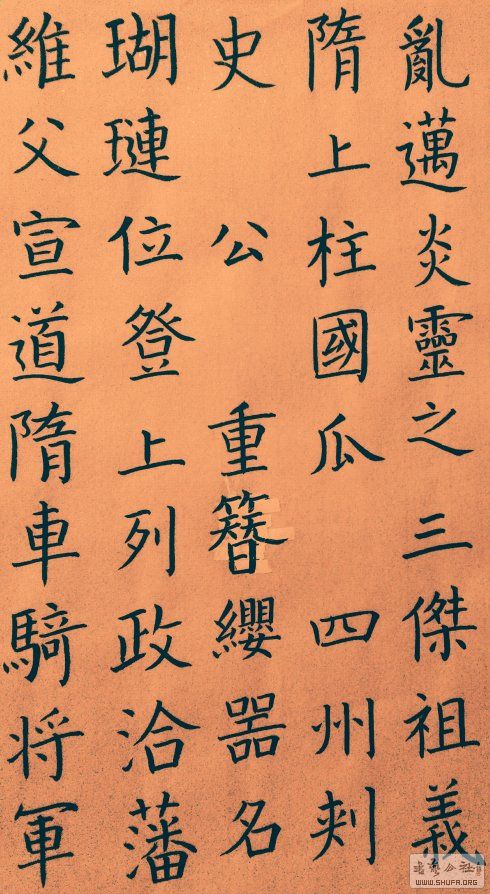 亂邁炎靈之三傑祖義
隋上柱國瓜四州刺
史公重簪纓器名
瑚璉位登上列政洽藩
維父宣道隋車騎将軍
书艺公社
WWW.SHUFA.ORG